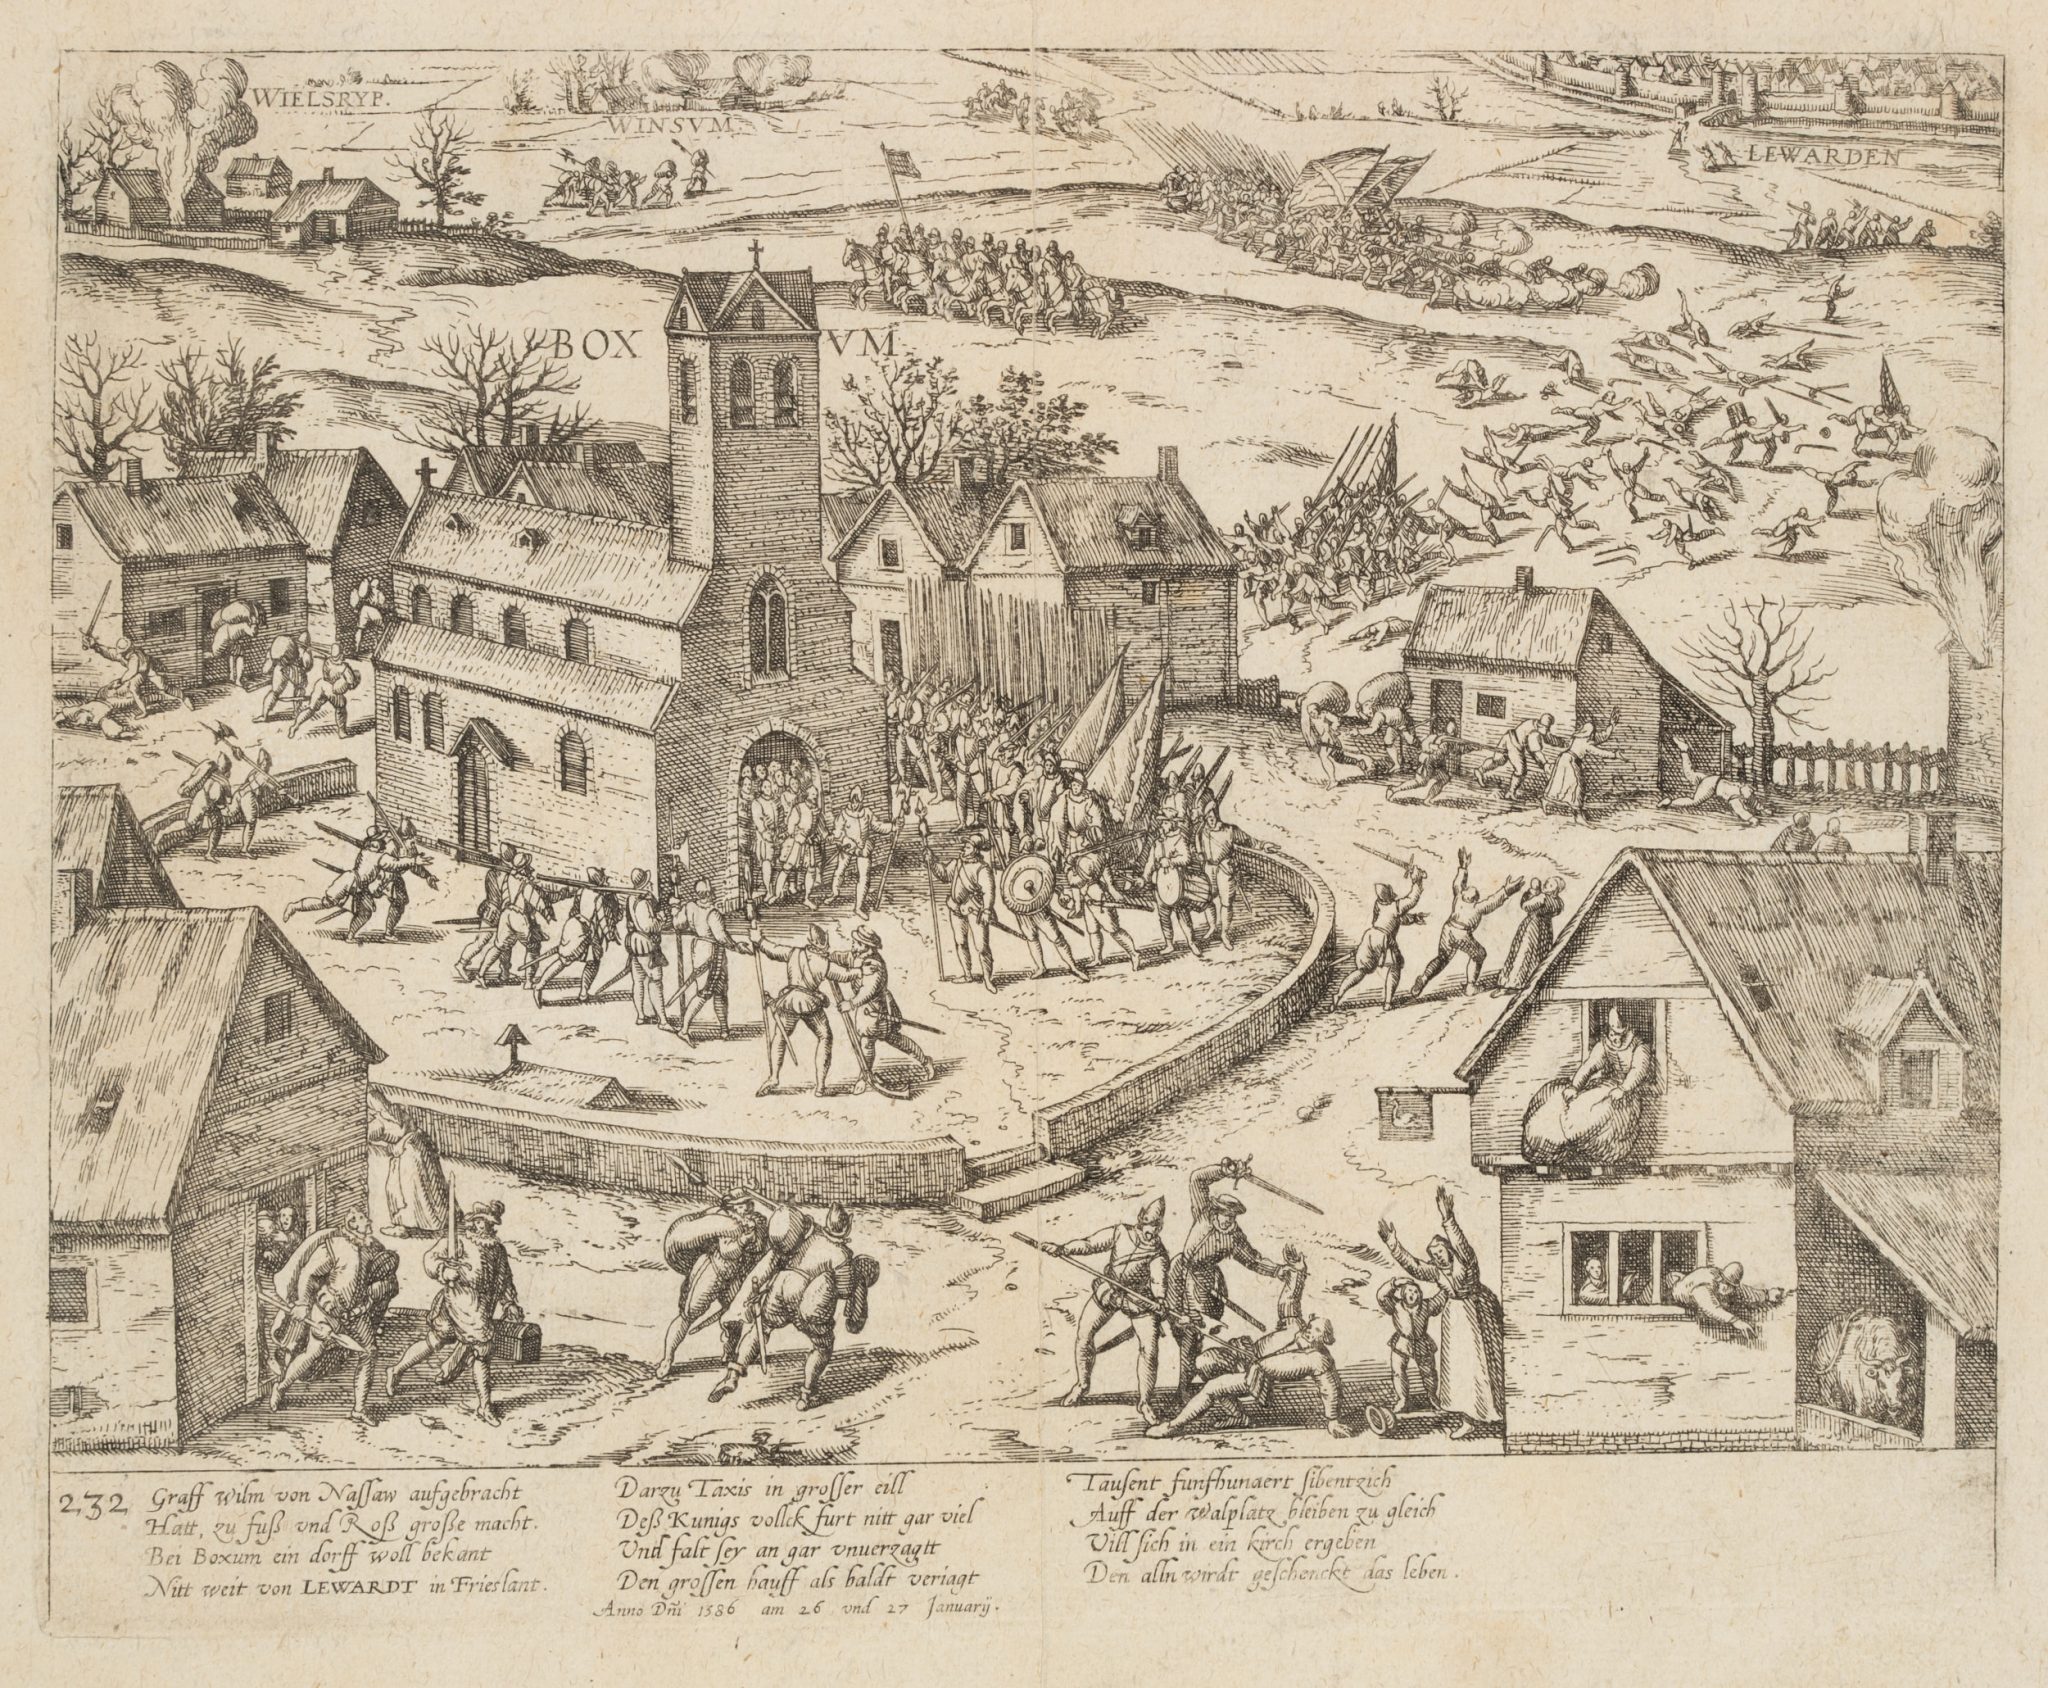 WIELSRYP.
WINSVM.
LEWARDEN
BOX VM
232
Graff Wilm von Nassaw aufgebracht
Hatt, zu fuß vnd Roß große macht.
Bei Boxum ein dorff woll bekant
Nitt weit von LEWARDT in Frieslant.
Darzu Taxis in grosser eill
Deß Kunigs vollck furt nitt gar viel
Vnd falt sey an gar vnuerzagtt
Den grossen hauff als baldt veriagt
Anno Dñi 1586 am 26 vnd 27 Januarÿ.
Tausent funfhundert sibentzich
Auff der walplatz bleiben zu gleich
Vill sich in ein kirch ergeben
Den alln wirdt geschenckt das leben.